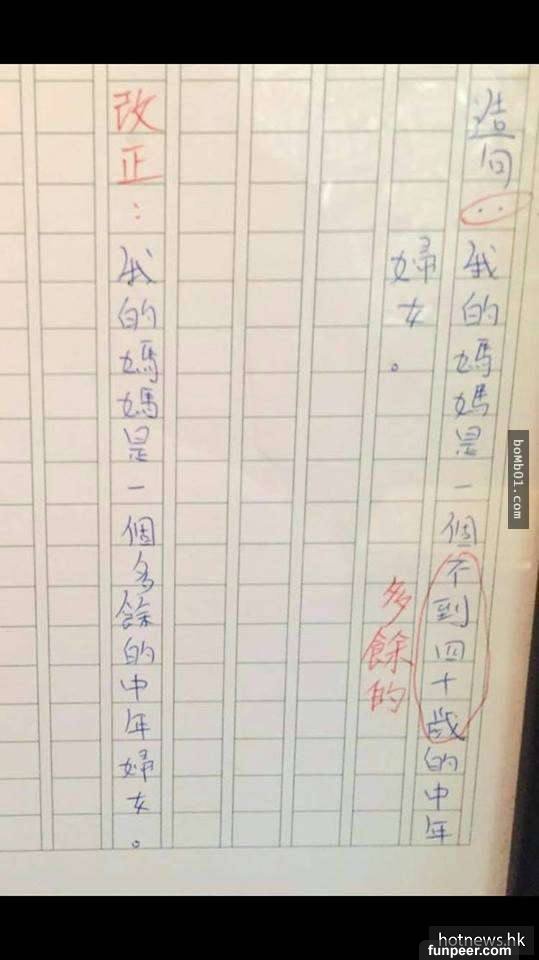 造句：
我的媽媽是一個不到四十歲的中年
婦女。
多餘的
改正：
我的媽媽是一個多餘的中年婦女。
boMb01.com
hotnews.hk
funpeer.com